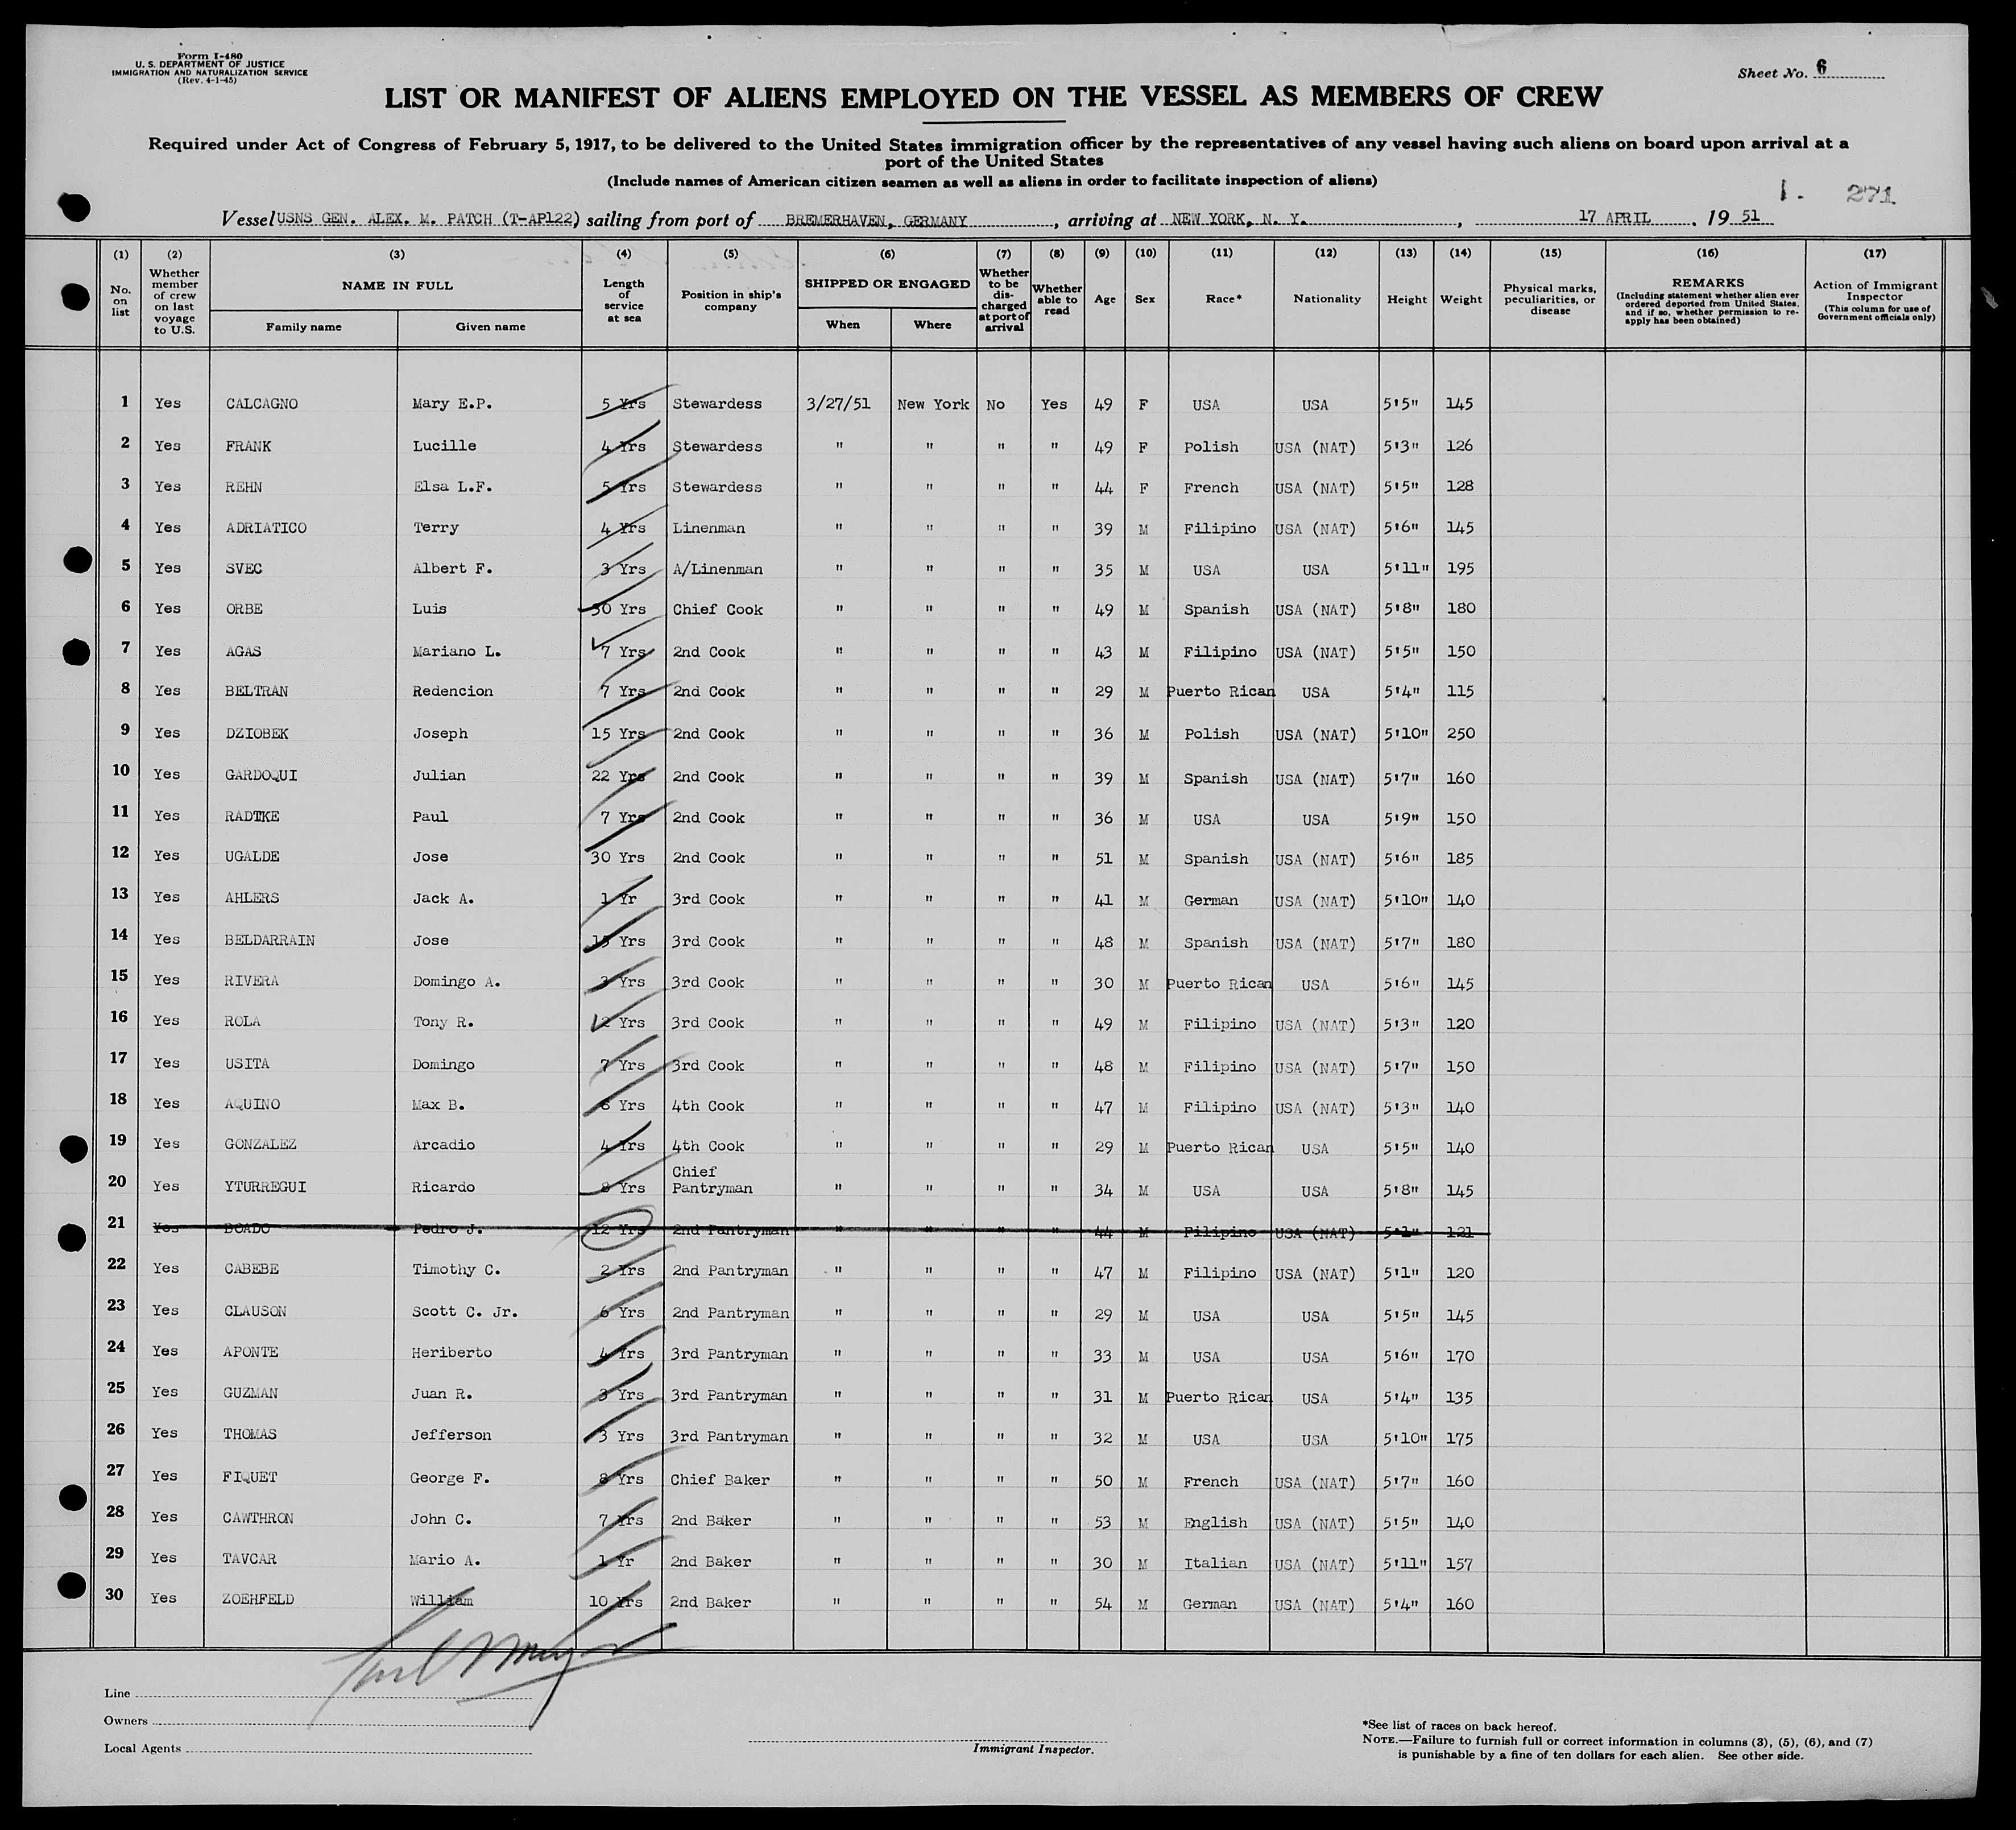 Form I-480
U. S. DEPARTMENT OF JUSTICE
IMMIGRATION AND NATURALIZATION SERVICE
(Rev. 4-1-45)
Sheet No. 6
LIST OR MANIFEST OF ALIENS EMPLOYED ON THE VESSEL AS MEMBERS OF CREW
Required under Act of Congress of February 5, 1917, to be delivered to the United States immigration officer by the representatives of any vessel having such aliens on board upon arrival at a
port of the United States
(Include names of American citizen seamen as well as aliens in order to facilitate inspection of aliens)
1. 271
Vessel USNS GEN. ALEX. M. PATCH (T-AP122) sailing from port of BREMERHAVEN, GERMANY, arriving at NEW YORK, N. Y., 17 APRIL, 19 51
(1) (2) (3) (4) (5) (6) (7) (8) (9) (10) (11) (12) (13) (14) (15) (16) (17)
No. on list
Whether member of crew on last voyage to U.S.
NAME IN FULL
Family name
Given name
Length of service at sea
Position in ship's company
SHIPPED OR ENGAGED
When
Where
Whether to be discharged at port of arrival
Whether able to read
Age
Sex
Race*
Nationality
Height
Weight
Physical marks, peculiarities, or disease
REMARKS
(Including statement whether alien ever ordered deported from United States, and if so, whether permission to re-apply has been obtained)
Action of Immigrant Inspector
(This column for use of Government officials only)
1 Yes CALCAGNO Mary E.P. 5 Yrs Stewardess 3/27/51 New York No Yes 49 F USA USA 5'5" 145
2 Yes FRANK Lucille 4 Yrs Stewardess " " " " 49 F Polish USA (NAT) 5'3" 126
3 Yes REHN Elsa L.F. 5 Yrs Stewardess " " " " 44 F French USA (NAT) 5'5" 128
4 Yes ADRIATICO Terry 4 Yrs Linenman " " " " 39 M Filipino USA (NAT) 5'6" 145
5 Yes SVEC Albert F. 3 Yrs A/Linenman " " " " 35 M USA USA 5'11" 195
6 Yes ORBE Luis 30 Yrs Chief Cook " " " " 49 M Spanish USA (NAT) 5'8" 180
7 Yes AGAS Mariano L. 7 Yrs 2nd Cook " " " " 43 M Filipino USA (NAT) 5'5" 150
8 Yes BELTRAN Redencion 7 Yrs 2nd Cook " " " " 29 M Puerto Rican USA 5'4" 115
9 Yes DZIOBEK Joseph 15 Yrs 2nd Cook " " " " 36 M Polish USA (NAT) 5'10" 250
10 Yes GARDOQUI Julian 22 Yrs 2nd Cook " " " " 39 M Spanish USA (NAT) 5'7" 160
11 Yes RADTKE Paul 7 Yrs 2nd Cook " " " " 36 M USA USA 5'9" 150
12 Yes UGALDE Jose 30 Yrs 2nd Cook " " " " 51 M Spanish USA (NAT) 5'6" 185
13 Yes AHLERS Jack A. 1 Yr 3rd Cook " " " " 41 M German USA (NAT) 5'10" 140
14 Yes BELDARRAIN Jose 15 Yrs 3rd Cook " " " " 48 M Spanish USA (NAT) 5'7" 180
15 Yes RIVERA Domingo A. 3 Yrs 3rd Cook " " " " 30 M Puerto Rican USA 5'6" 145
16 Yes ROLA Tony R. 2 Yrs 3rd Cook " " " " 49 M Filipino USA (NAT) 5'3" 120
17 Yes USITA Domingo 7 Yrs 3rd Cook " " " " 48 M Filipino USA (NAT) 5'7" 150
18 Yes AQUINO Max B. Yrs 4th Cook " " " " 47 M Filipino USA (NAT) 5'3" 140
19 Yes GONZALEZ Arcadio 4 Yrs 4th Cook " " " " 29 M Puerto Rican USA 5'5" 140
20 Yes YTURREGUI Ricardo 8 Yrs Chief Pantryman " " " " 34 M USA USA 5'8" 145
21 Yes BOADO Pedro J. 12 Yrs 2nd Pantryman " " " " 44 M Filipino USA (NAT) 5'1" 121
22 Yes CABEBE Timothy C. 2 Yrs 2nd Pantryman " " " " 47 M Filipino USA (NAT) 5'1" 120
23 Yes CLAUSON Scott C. Jr. 6 Yrs 2nd Pantryman " " " " 29 M USA USA 5'5" 145
24 Yes APONTE Heriberto 4 Yrs 3rd Pantryman " " " " 33 M USA USA 5'6" 170
25 Yes GUZMAN Juan R. 3 Yrs 3rd Pantryman " " " " 31 M Puerto Rican USA 5'4" 135
26 Yes THOMAS Jefferson 3 Yrs 3rd Pantryman " " " " 32 M USA USA 5'10" 175
27 Yes FIQUET George F. 8 Yrs Chief Baker " " " " 50 M French USA (NAT) 5'7" 160
28 Yes CAWTHRON John C. 7 Yrs 2nd Baker " " " " 53 M English USA (NAT) 5'5" 140
29 Yes TAVCAR Mario A. 1 Yr 2nd Baker " " " " 30 M Italian USA (NAT) 5'11" 157
30 Yes ZOEHFELD William 10 Yrs 2nd Baker " " " " 54 M German USA (NAT) 5'4" 160
Line
Owners
Local Agents
Immigrant Inspector.
*See list of races on back hereof.
NOTE.—Failure to furnish full or correct information in columns (3), (5), (6), and (7)
is punishable by a fine of ten dollars for each alien. See other side.